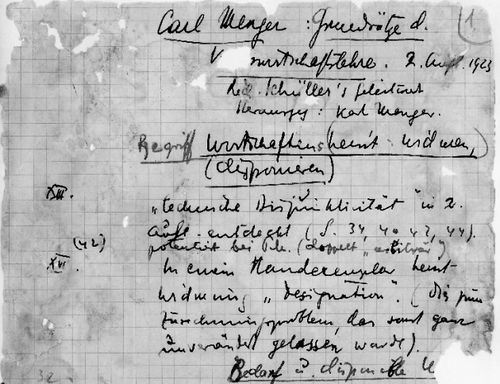 Carl Menger: Grundsätze d. 1
V wirtschaftslehre. 2. Aufl. 1923
Schüller's
Herausgeg: Karl Menger.
Begriff wirtschaften (heisst: widmen,)
(disponieren)
XIII. „technische Disjunktivität" in 2.
Aufl. entdeckt (S. 34, 40 43, 44).
(42) potentiert bei (doppelt
XVI. In einem Handexemplar heisst
widmung „designation". (
Zurechnungsproblem, das sonst ganz
unverändert gelassen wurde).
32 Bedarf u. disponible